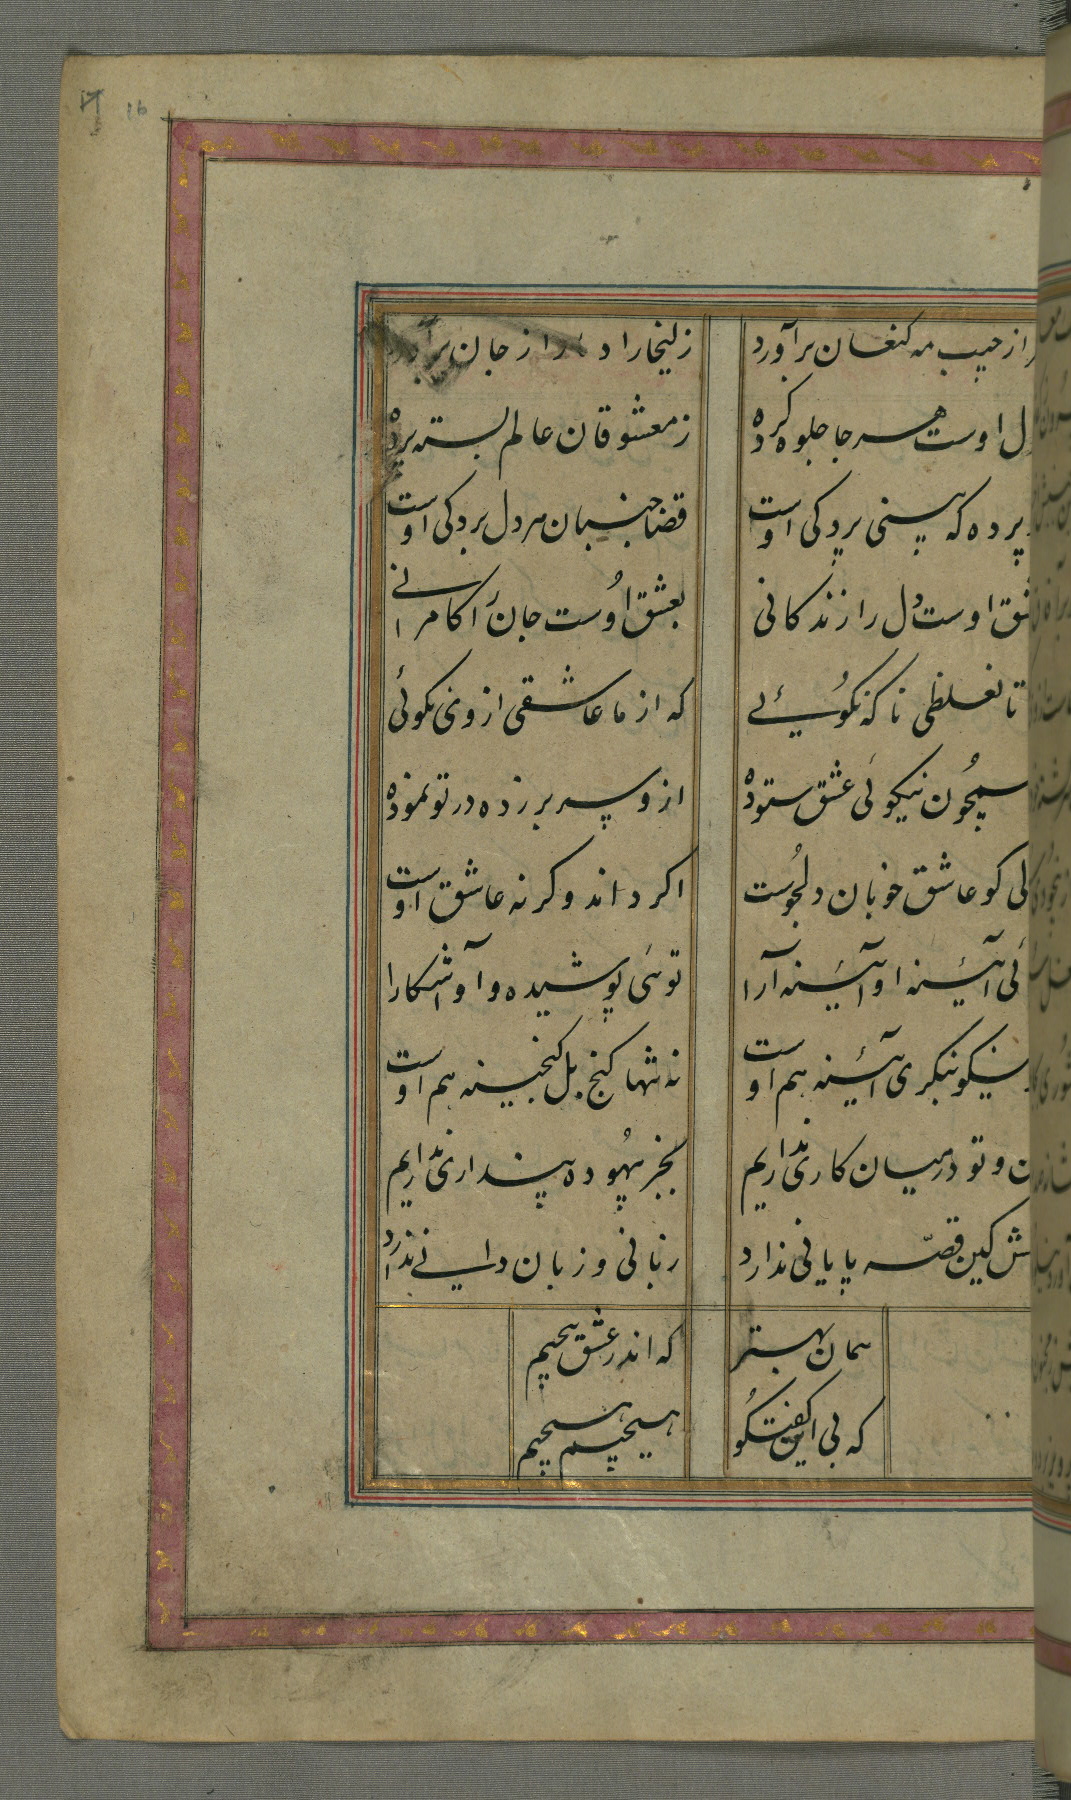 از جیب مه کنعان برآورد
زلیخا را دمار از جان برآورد
اوست هر جا جلوه کرده
ز معشوقان عالم بسته پرده
پرده که بینی پردکی اوست
قضا جنبان هر دل بردکی اوست
اوست دل را زندکانی
بعشق اوست جان را کامرانی
تا نغلطی تا که نکوئی
که از ما عاشقی از وی نکوئی
نیکوئی عشق ستوده
ازو سر بر زده در تو نموده
کو عاشق خوبان دلجوست
اکر داند وکر نه عاشق اوست
آئینه او آئینه آرا
توئی پوشیده و او آشکارا
نیکو بنکری آئینه هم اوست
نه تنها کنج بل کنجینه هم اوست
و تو در میان کاری نداریم
بجز بیهوده پنداری نداریم
کین قصه پایانی ندارد
زبانی و زبان دانی ندارد
همان بهتر
که اندر عشق پیچیم
که بی این کفتکو
هیچیم هیچیم
16